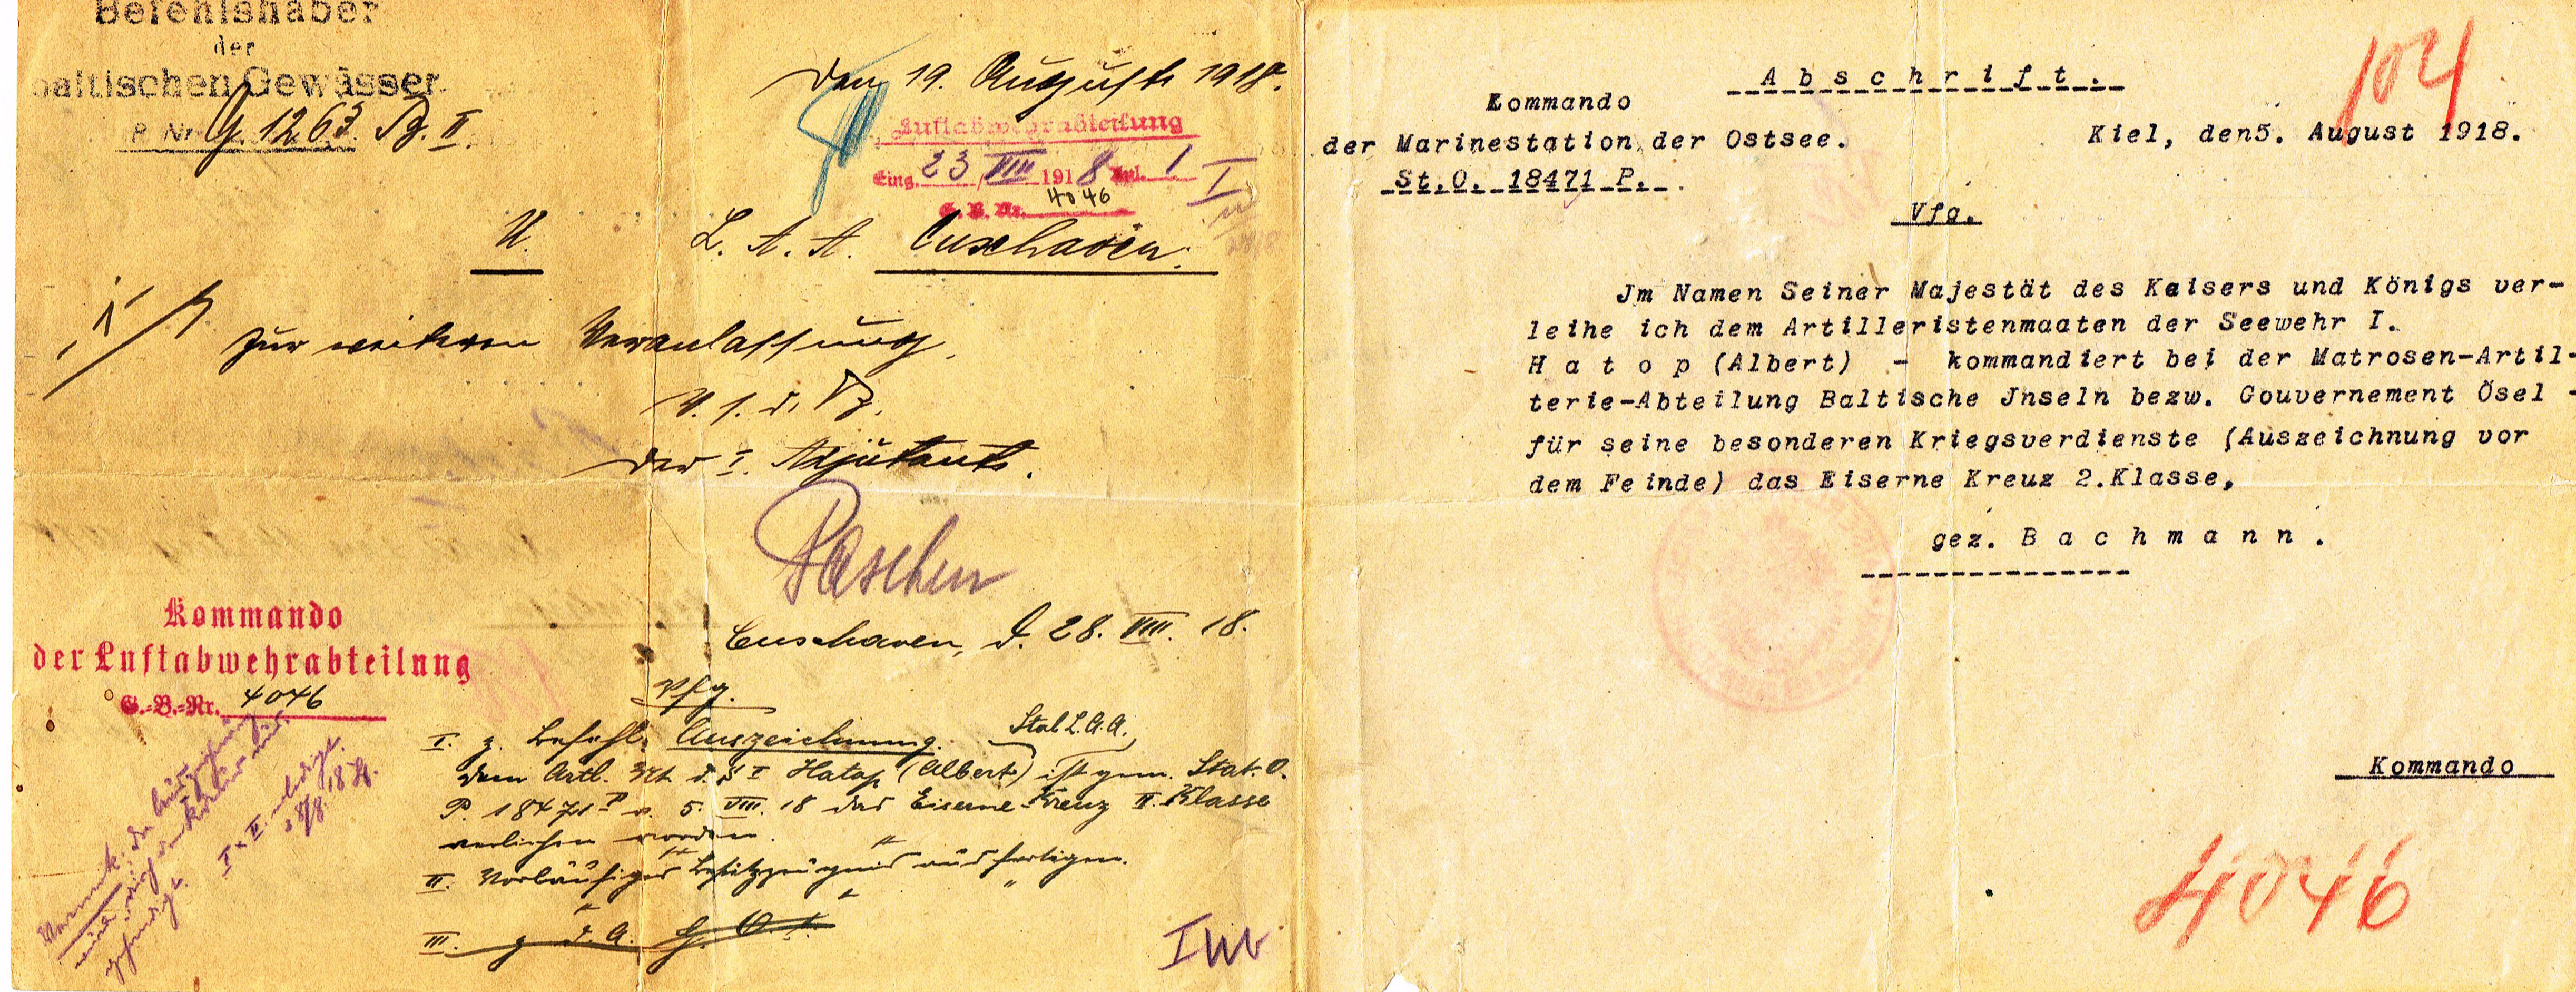 Befehlshaber
der
baltischen Gewässer.
P. Nr. G. 1263. B. II.
den 19. August 1918.
Luftabwehrabteilung
Eing. 23/VIII 1918 Anl. 1
G. B. Nr. 4046
I
U.
L. A. A. Cuxhaven.
zur weiteren Veranlassung.
V. s. d. B.
Der I. Adjutant.
Paschen
Kommando
der Luftabwehrabteilung
G.-B.-Nr. 4046
Cuxhaven, d. 28. VIII. 18.
Vfg.
I. z. Befehl: Auszeichnung.
Stab L.A.A.,
dem Artl. Mt. d. S I Hatop (Albert) ist gem. Stat. O.
P. 18471 P v. 5. VIII. 18 das Eiserne Kreuz II. Klasse
verliehen worden.
II. Vorläufiges Besitzzeugnis ausfertigen.
III. z. d. A.
I x II erledigt.
28/8. 18
104
Abschrift.
Kommando
der Marinestation der Ostsee.
Kiel, den5. August 1918.
St.O. 18471 P.
Vfg.
Jm Namen Seiner Majestät des Kaisers und Königs ver-
leihe ich dem Artilleristenmaaten der Seewehr I.
H a t o p (Albert) - kommandiert bei der Matrosen-Artil-
lerie-Abteilung Baltische Jnseln bezw. Gouvernement Ösel -
für seine besonderen Kriegsverdienste (Auszeichnung vor
dem Feinde) das Eiserne Kreuz 2.Klasse,
gez. B a c h m a n n .
Kommando
4046